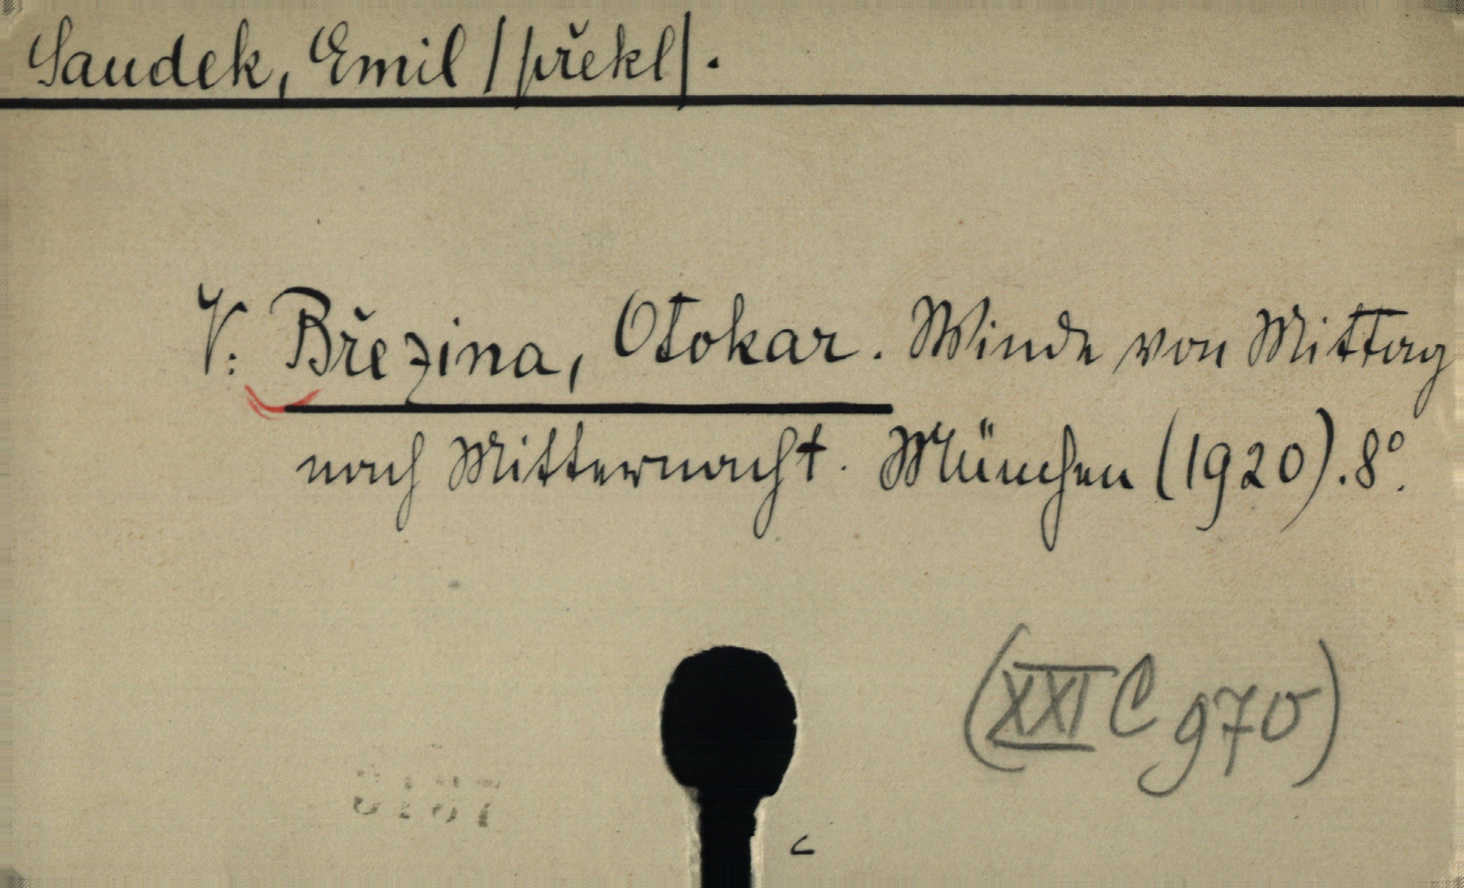 Saudek, Emil /překl/.
V: Březina, Otokar. Winde von Mittag
nach Mitternacht. München (1920). 8°.
(XXI C 970)